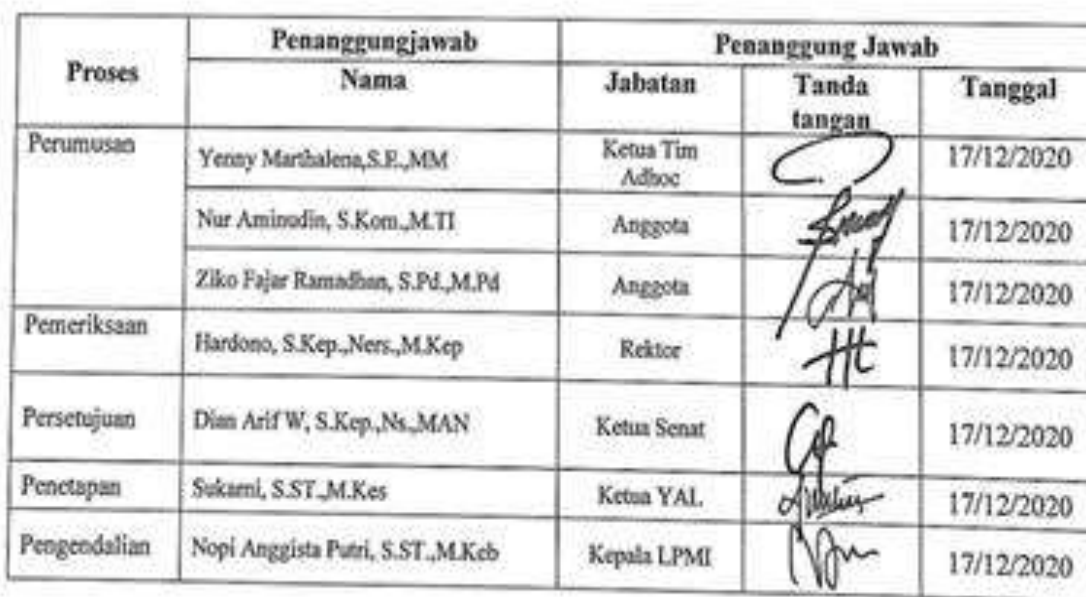 Proses Penanggungjawab Penanggung Jawab
Nama Jabatan Tanda tangan Tanggal
Perumusan Yenny Marthalena,S.E.,MM Ketua Tim Adhoc 17/12/2020
Nur Aminudin, S.Kom.,M.TI Anggota 17/12/2020
Ziko Fajar Ramadhan, S.Pd.,M.Pd Anggota 17/12/2020
Pemeriksaan Hardono, S.Kep.,Ners.,M.Kep Rektor 17/12/2020
Persetujuan Dian Arif W, S.Kep.,Ns.,MAN Ketua Senat 17/12/2020
Penetapan Sukarni, S.ST.,M.Kes Ketua YAL 17/12/2020
Pengendalian Nopi Anggista Putri, S.ST.,M.Keb Kepala LPMI 17/12/2020